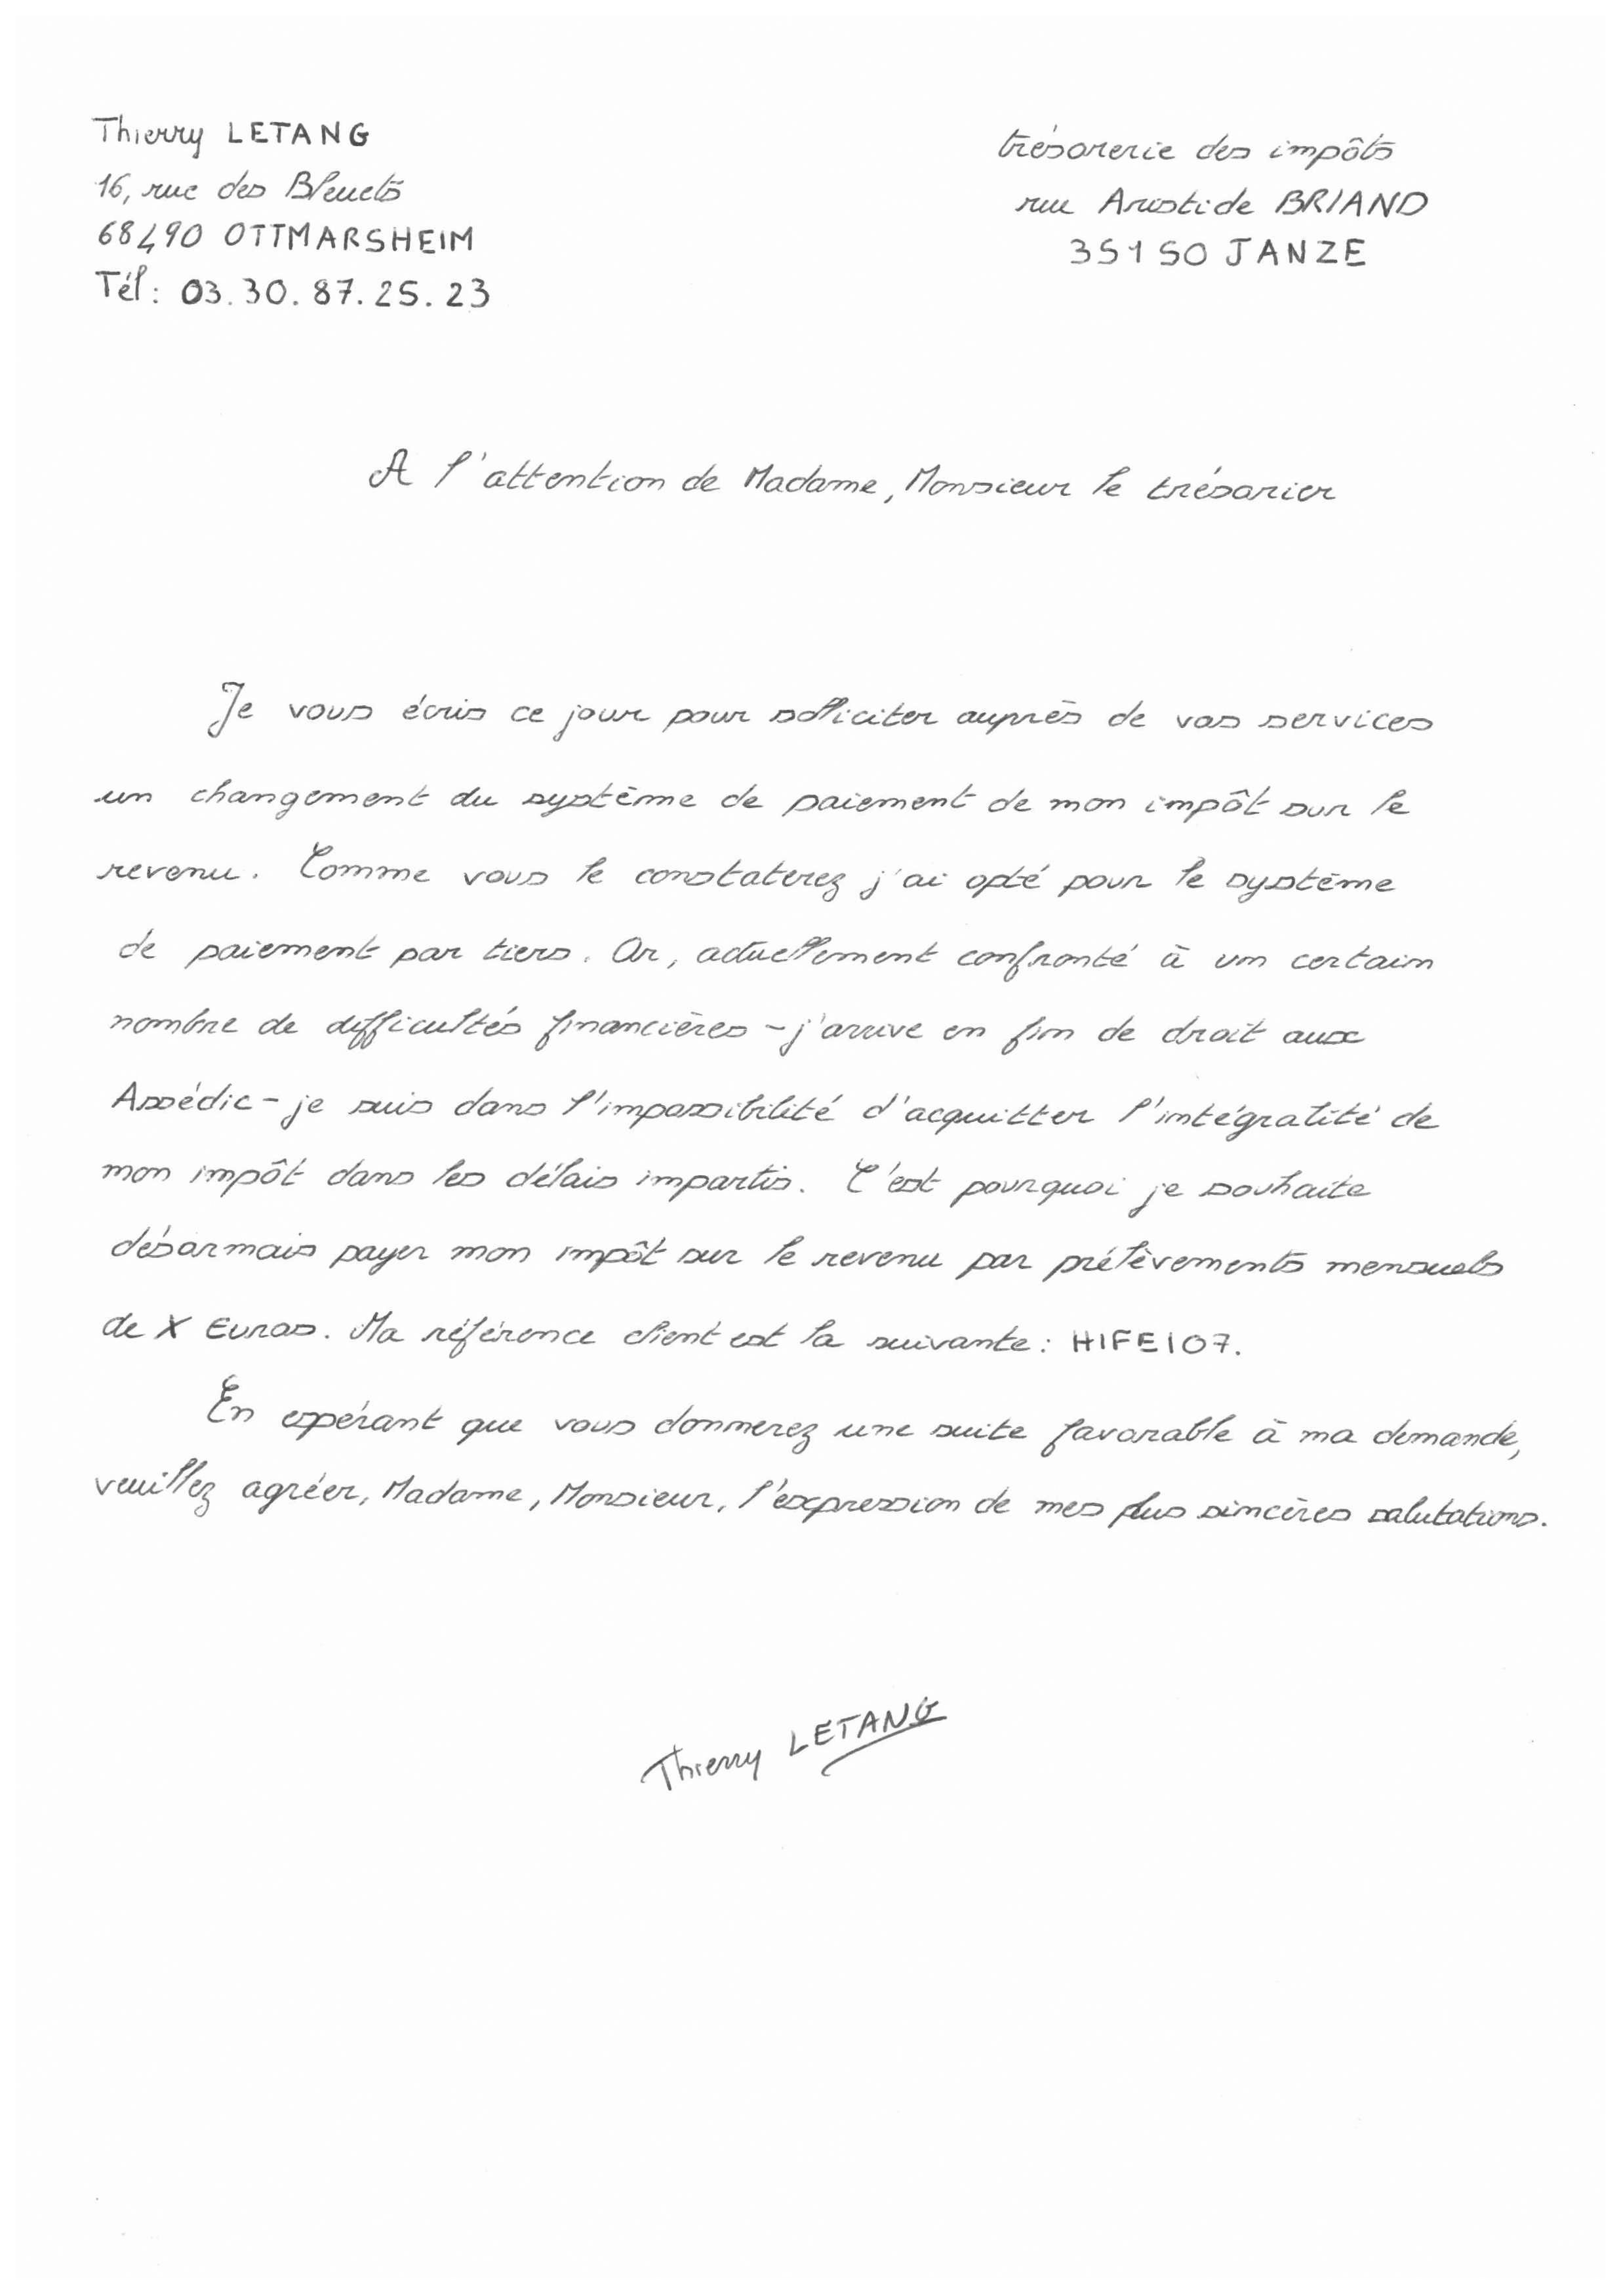 Thierry LETANG
16, rue des Bleuets
68490 OTTMARSHEIM
Tél : 03.30.87.25.23
trésorerie des impôts
rue Aristide BRIAND
35150 JANZE
A l'attention de Madame, Monsieur le trésorier
Je vous écris ce jour pour solliciter auprès de vos services
un changement du système de paiement de mon impôt sur le
revenu. Comme vous le constaterez j'ai opté pour le système
de paiement par tiers. Or, actuellement confronté à un certain
nombre de difficultés financières - j'arrive en fin de droit aux
Assédic - je suis dans l'impossibilité d'acquitter l'intégralité de
mon impôt dans les délais impartis. C'est pourquoi je souhaite
désormais payer mon impôt sur le revenu par prélèvements mensuels
de X Euros. Ma référence client est la suivante : HIFEI07.
En espérant que vous donnerez une suite favorable à ma demande,
veuillez agréer, Madame, Monsieur, l'expression de mes plus sincères salutations.
Thierry LETANG